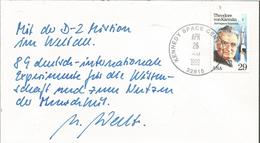 Mit der D-2 Mission
im Weltall.
89 deutsch-internationale
Experimente für die Wissen-
schaft und zum Nutzen
der Menschheit.
KENNEDY SPACE CENTER
APR
26
AM
1993
32815
Theodore
von Kármán
USA 29